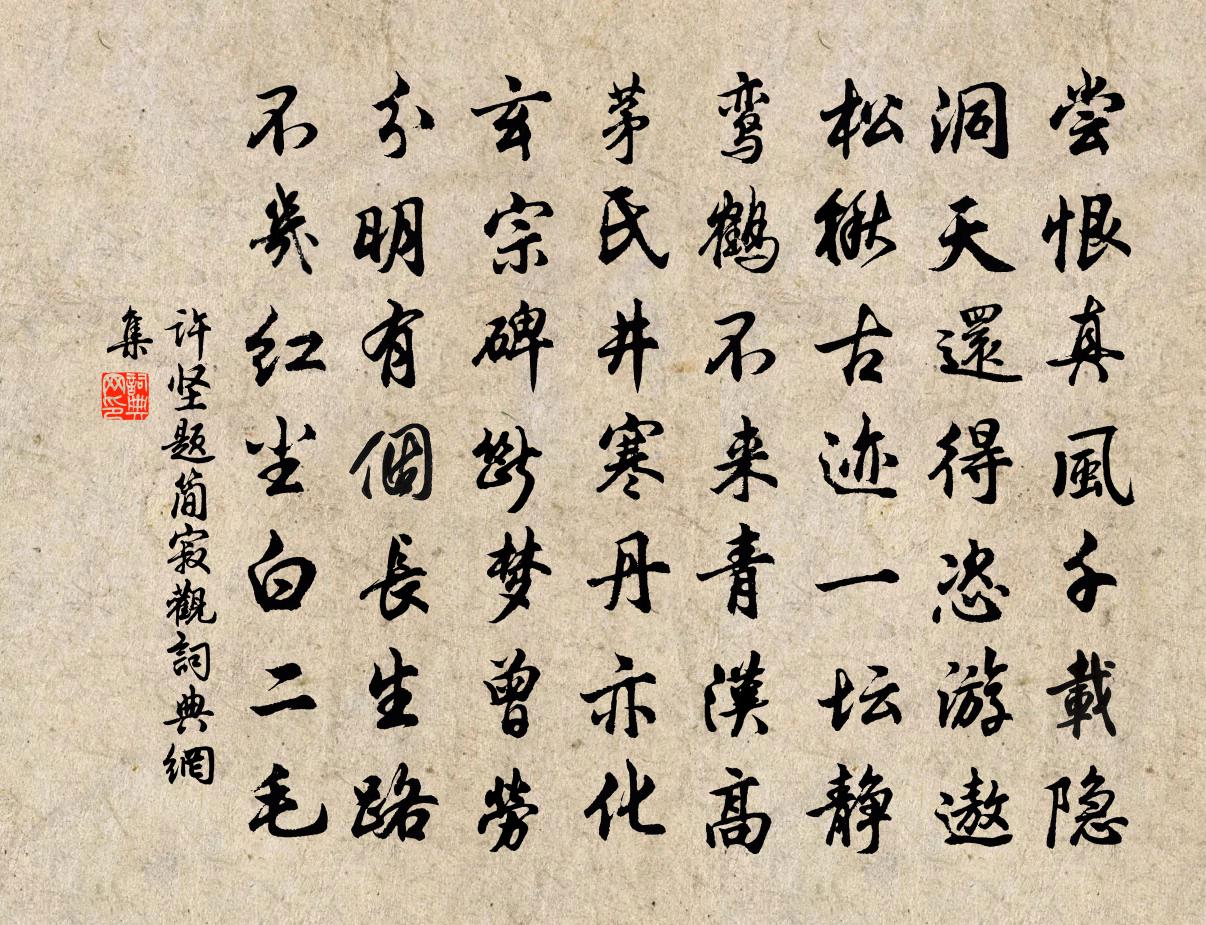 尝恨真風千載隐
洞天還得恣游遨
松楸古迹一坛静
鸾鹤不来青漢高
茅氏井寒丹亦化
玄宗碑斷梦曾劳
分明有個長生路
不幾红尘白二毛
许坚题简寂觀詞典網
集
詞典网印